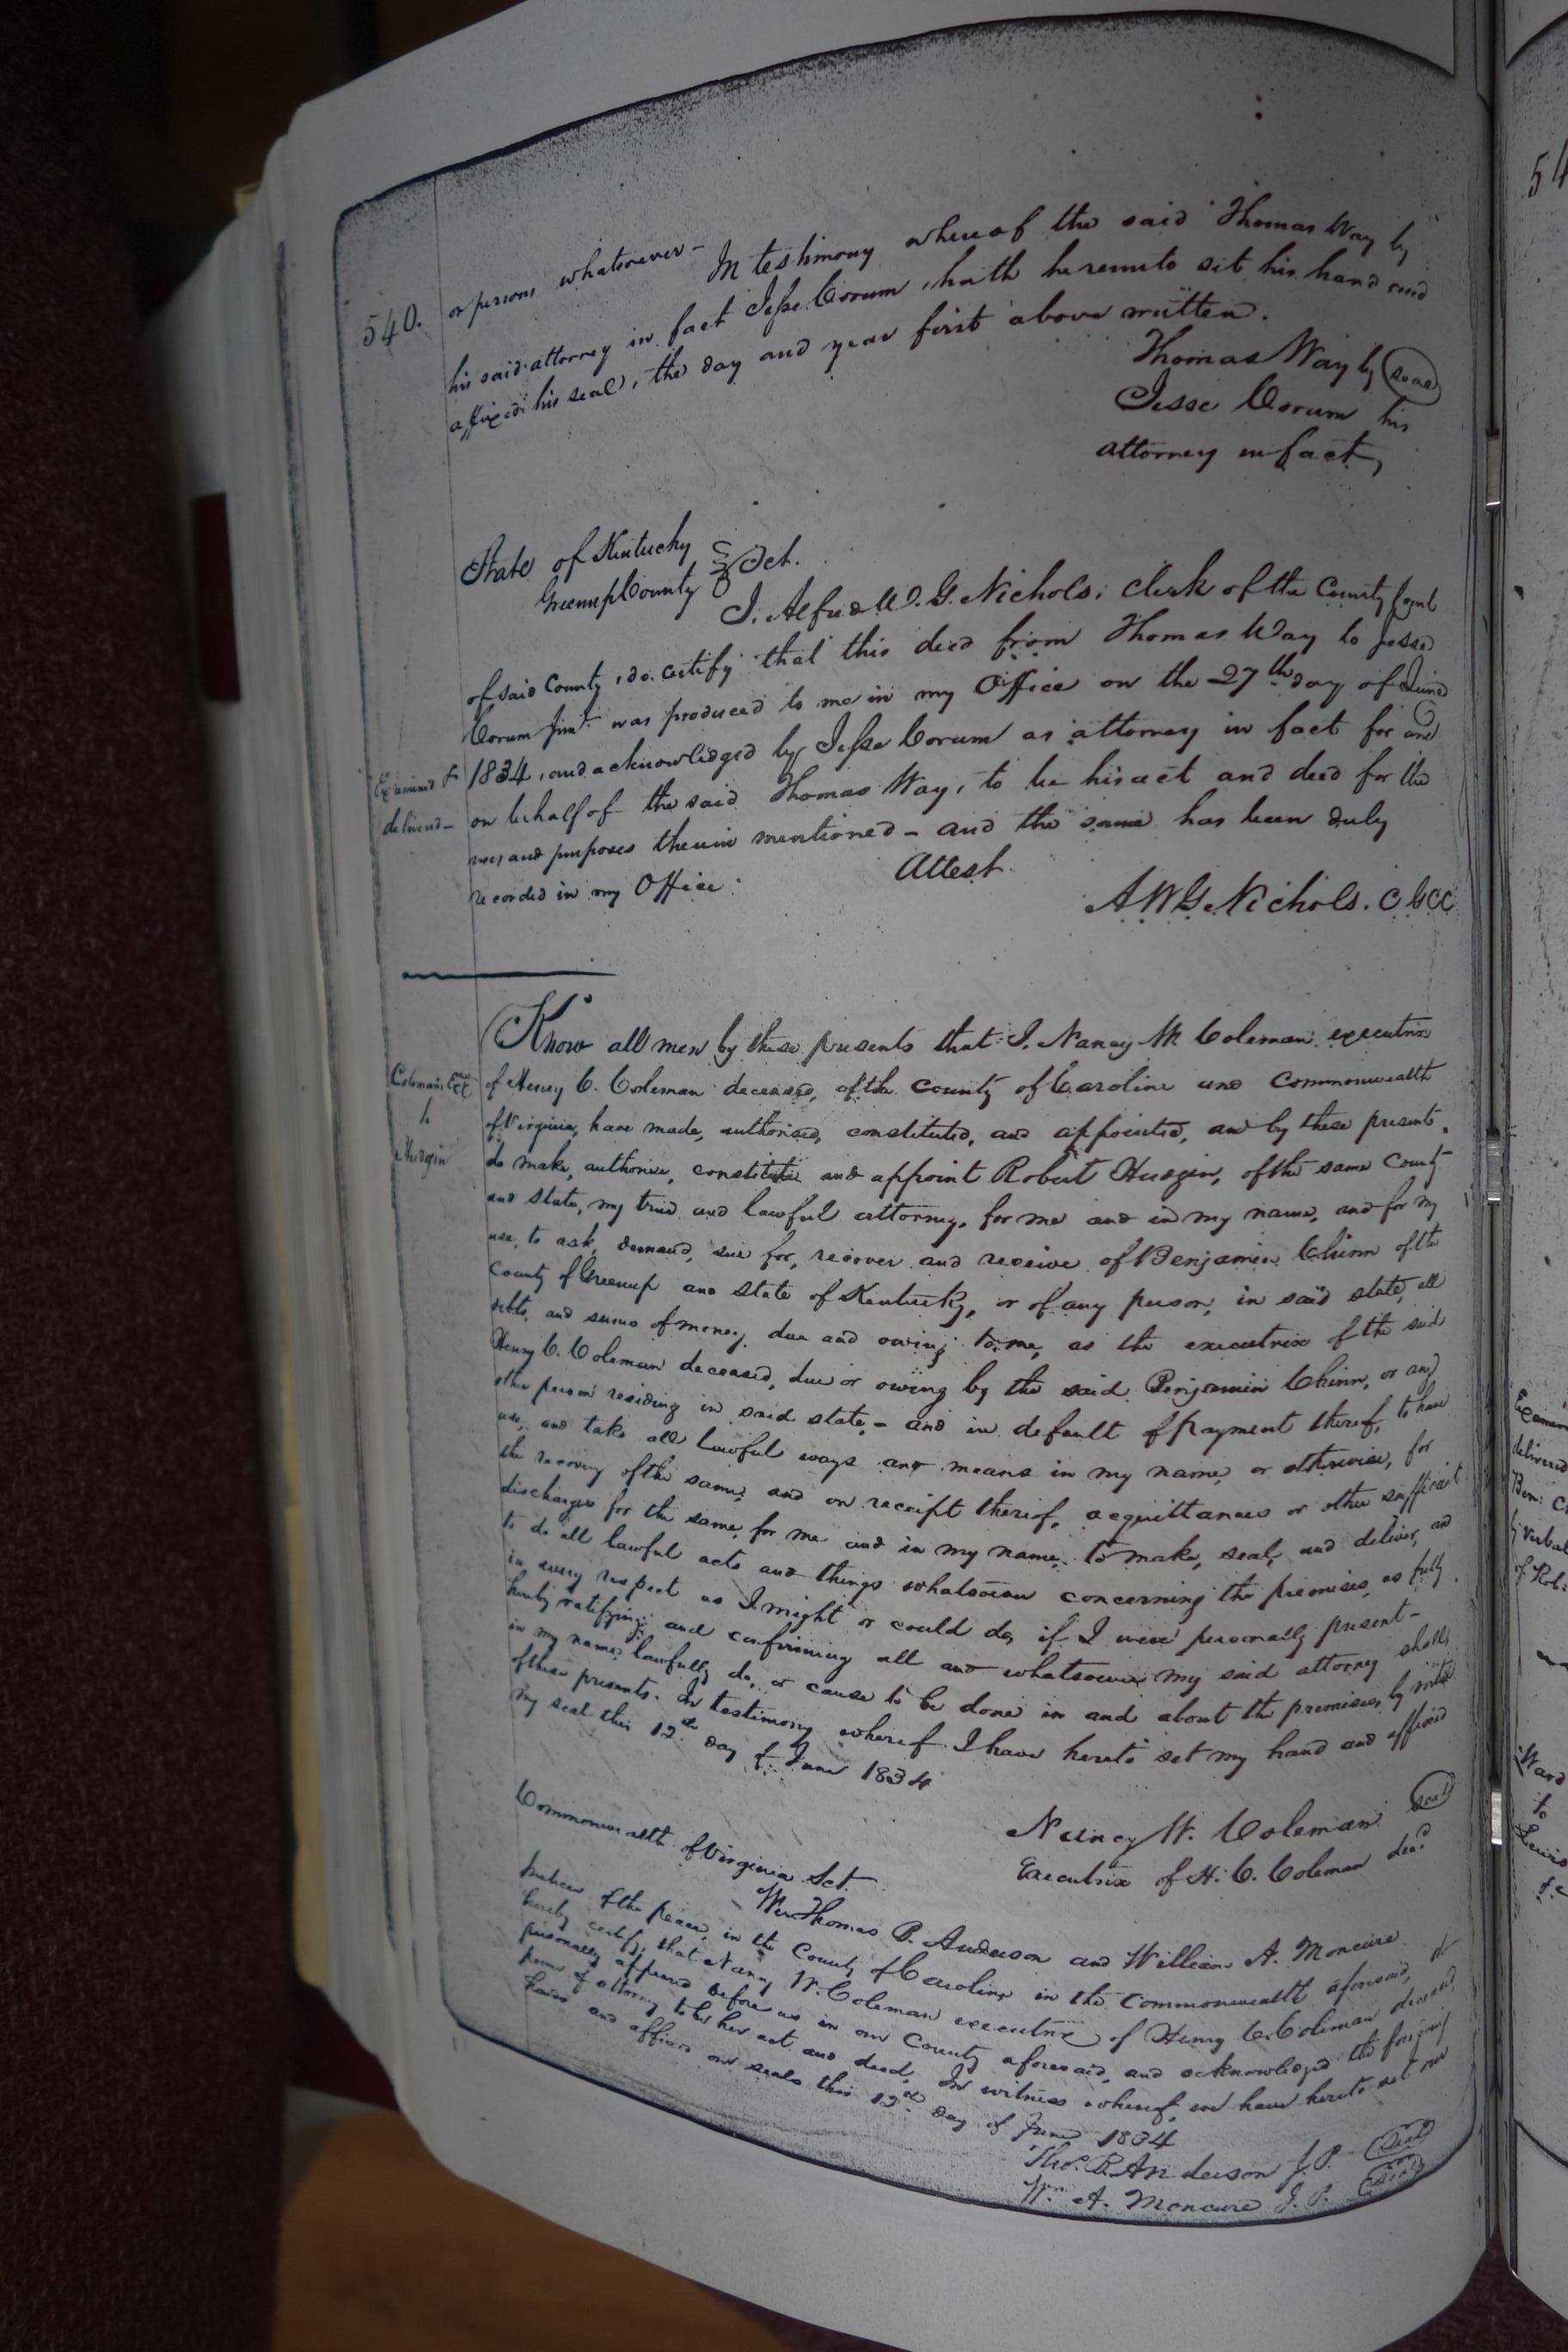 540.
or persons whatsoever - In testimony whereof the said Thomas Way by
his said attorney in fact Jesse Corum, hath hereunto set his hand and
affixed his seal, the day and year first above written.
Thomas Way by (seal)
Jesse Corum his
attorney in fact,
State of Kentucky
Greenup County Sct.
I, Alfred W. G. Nichols, Clerk of the County Court
of said County, do certify that this deed from Thomas Way to Jesse
Corum Junr. was produced to me in my Office on the 27th day of June
Examined &
delivered -
1834, and acknowledged by Jesse Corum as attorney in fact for and
on behalf of the said Thomas Way, to be his act and deed for the
uses and purposes therein mentioned - and the same has been duly
recorded in my Office:
Attest.
A W G Nichols. C G C C
Know all men by these presents that I, Nancy W Coleman executrix
Coleman's Ex
to
Hurgin
of Henry C. Coleman deceased, of the county of Caroline and Commonwealth
of Virginia, have made, authorised, constituted, and appointed, and by these presents,
do make, authorise, constitute and appoint Robert Hurgin, of the same County
and state, my true and lawful attorney, for me and in my name, and for my
use, to ask, demand, sue for, recover and receive of Benjamin Chinn of the
County of Greenup and state of Kentucky, or of any person, in said state, all
debts, and sums of money due and owing to me, as the executrix of the said
Henry C. Coleman deceased, due or owing by the said Benjamin Chinn, or any
other person residing in said state, - and in default of payment thereof, to have
use, and take all lawful ways and means in my name, or otherwise, for
the recovery of the same, and on receipt thereof, acquittances or other sufficient
discharges for the same, for me and in my name, to make, seal, and deliver, and
to do all lawful acts and things whatsoever concerning the premises, as fully
in every respect as I might or could do, if I were personally present -
hereby ratifying and confirming all and whatsoever my said attorney shall
in my name, lawfully do, or cause to be done in and about the premises, by virtue
of these presents. In testimony whereof I have hereto set my hand and affixed
my seal this 12th day of June 1834
Nancy W. Coleman (seal)
Executrix of H. C. Coleman decd.
Commonwealth of Virginia Sct.
We Thomas B. Anderson and William A. Moncure
justices of the peace, in the County of Caroline in the commonwealth aforesaid, do
hereby certify that Nancy W. Coleman executrix of Henry C. Coleman deceased
personally appeared before us in our County aforesaid, and acknowledged the foregoing
power of attorney to be her act and deed, In witness whereof, we have hereto set our
hands and affixed our seals this 12th day of June 1834
Tho. B. Anderson J. P. (Seal)
Wm. A. Moncure J. P. (Seal)
54
delivered
by verbal
Ward
to
Lewis